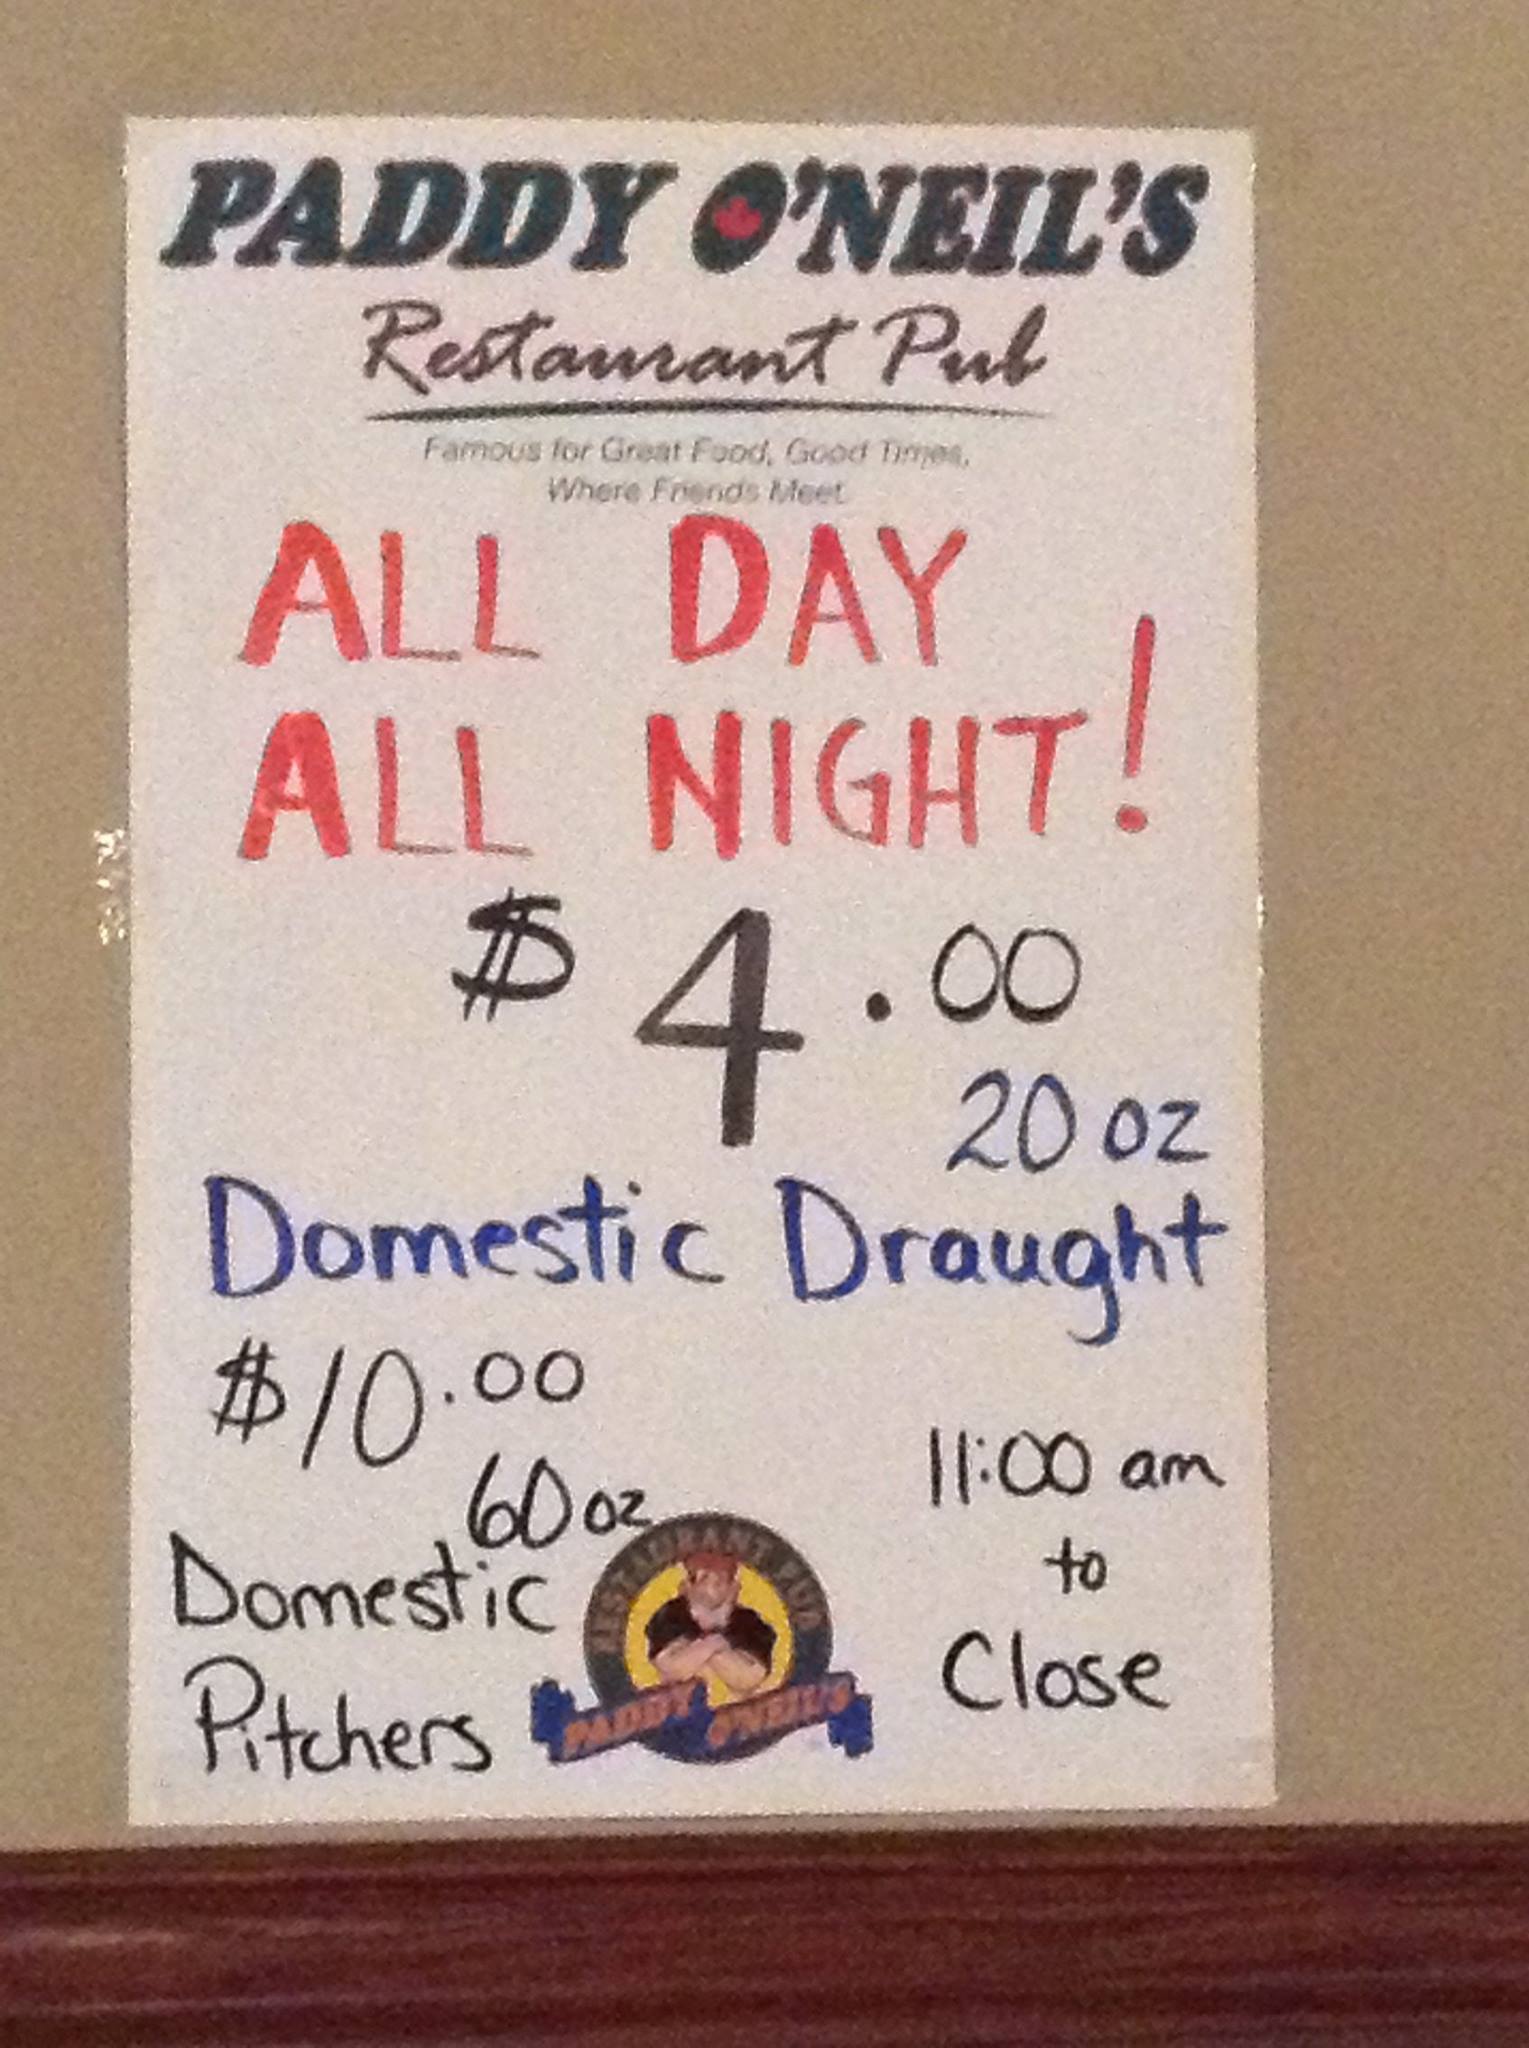 PADDY O'NEIL'S
Restaurant Pub
Famous for Great Food, Good Times,
Where Friends Meet
ALL DAY
ALL NIGHT!
$4.00
20 oz
Domestic Draught
$10.00
60 oz
Domestic
Pitchers
11:00 am
to
Close
RESTAURANT PUB
PADDY O'NEIL'S